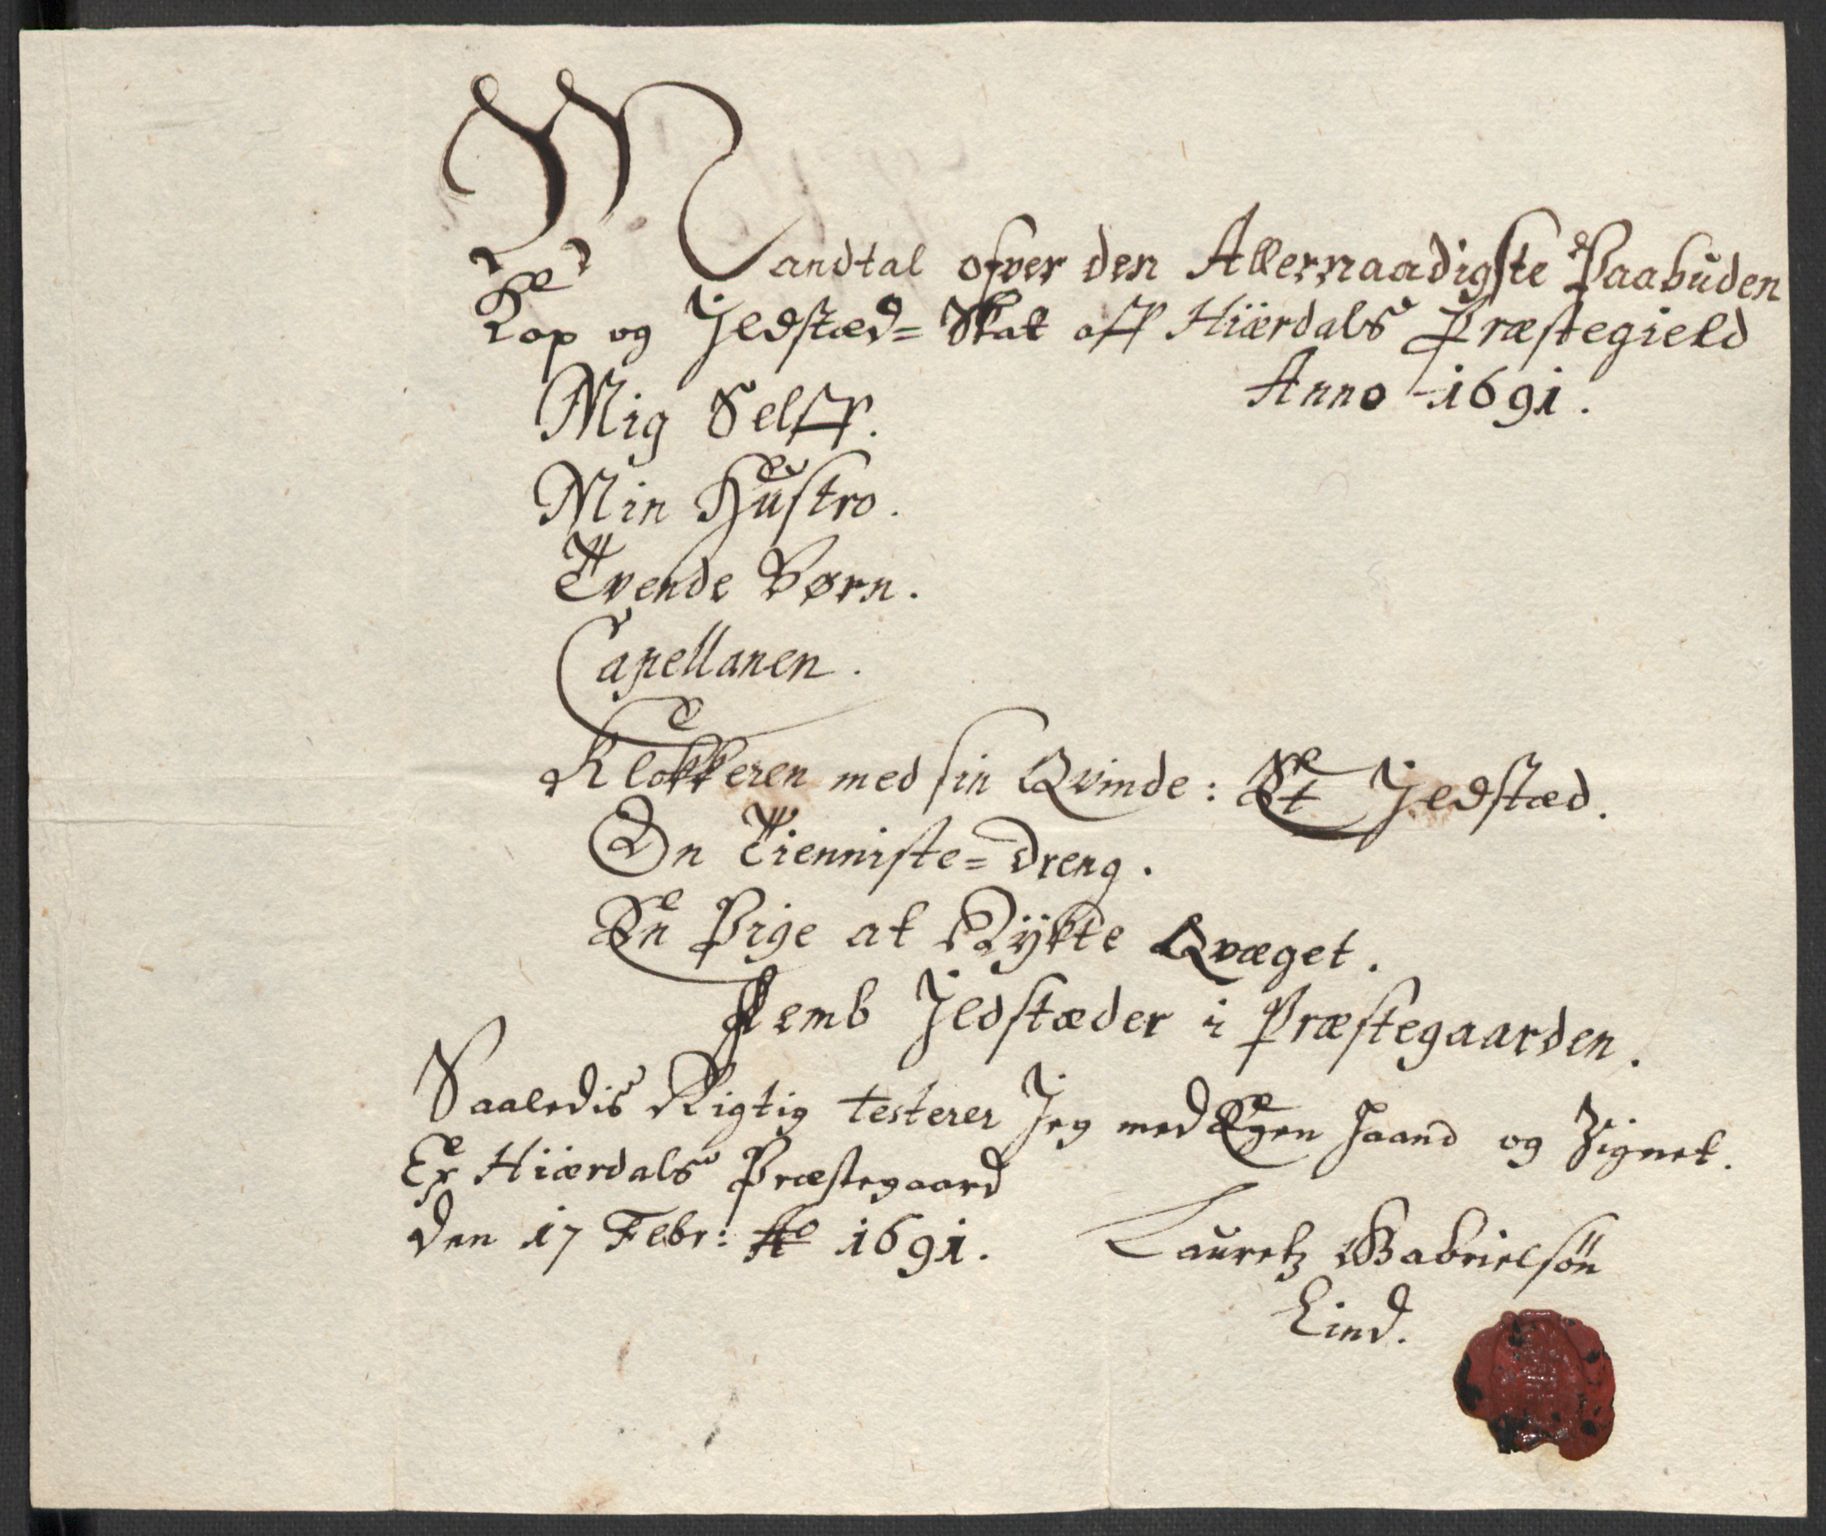 Mandtal ofver den Allernaadigste Paabuden
Kop og Jldstæd= Skat aff Hiærdals Præstegield
Anno 1691.
Mig Selff.
Min Hustro.
Tvende Børn.
Capellanen.
Klokkeren med sin Qvinde: Et Jldstæd.
En Tienniste= dreng.
En Pige at Rÿkte Qvæget.
Femb Jldstæder i Præstegaarden.
Saaledis Rigtig testerer Jeg med Egen Haand og Zignet.
Ex Hiærdals Præstegaard
den 17 Febr: Ao 1691.
Lauretz Gabrielsøn
Lind.